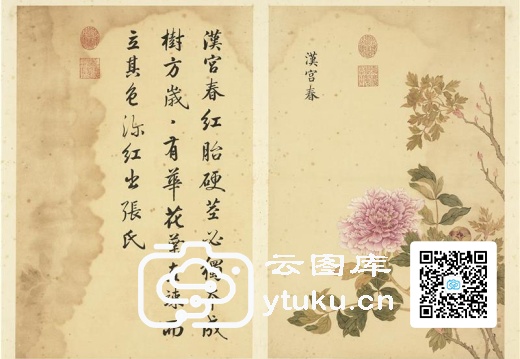 漢宮春
漢宮春紅胎硬莖必獨本成
樹方歲〻有華花葉疎而
立其色深紅出張氏
云图库
ytuku.cn